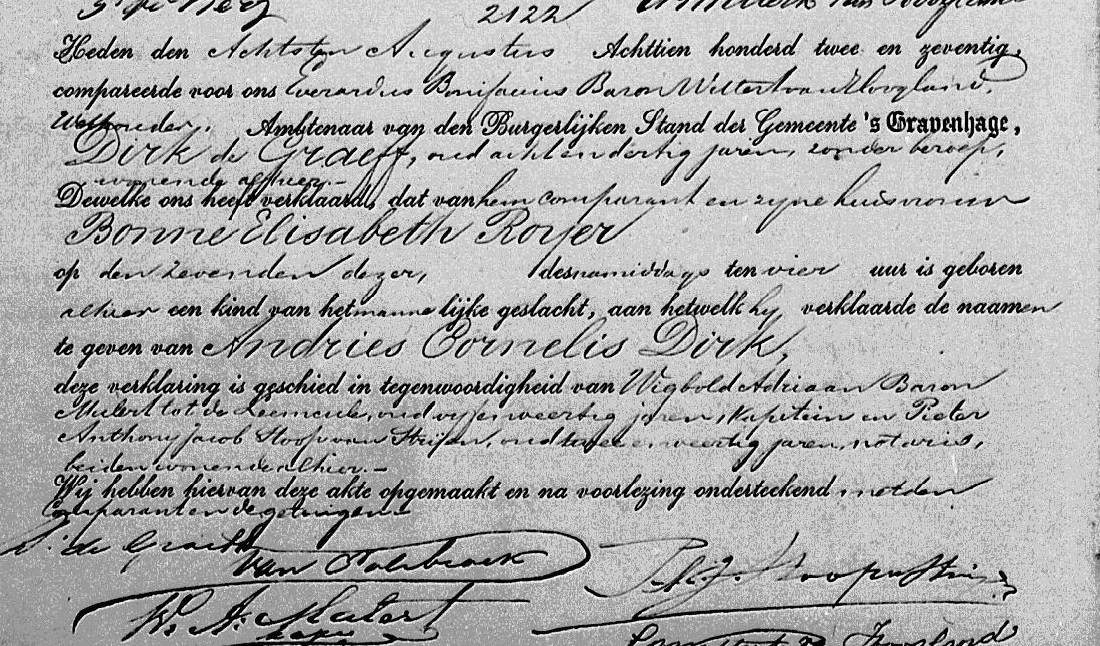 2122
Heden den Achtsten Augustus Achttien honderd twee en zeventig,
compareerde voor ons Everardus Bonifacius Baron Wittert van Hoogland,
Wethouder, Ambtenaar van den Burgerlijken Stand der Gemeente 's Gravenhage,
Dirk de Graeff, oud achtendertig jaren, zonder beroep,
wonende alhier.—
Dewelke ons heeft verklaard, dat van hem comparant en zijne huisvrouw
Bonne Elisabeth Royer
op den zevenden dezer, des namiddags ten vier uur is geboren
alhier een kind van het mannelijke geslacht, aan hetwelk hij verklaarde de naamen
te geven van Andries Cornelis Dirk,
deze verklaring is geschied in tegenwoordigheid van Wigbold Adriaan Baron
Mulert tot de Leemcule, oud vijfenveertig jaren, Kapitein en Pieter
Anthony Jacob Hoop van Strijen, oud tweeenveertig jaren, notaris,
beiden wonende alhier.—
Wij hebben hiervan deze akte opgemaakt en na voorlezing onderteekend, met den
Comparant en de getuigen.—
D. de Graeff
W. A. Mulert